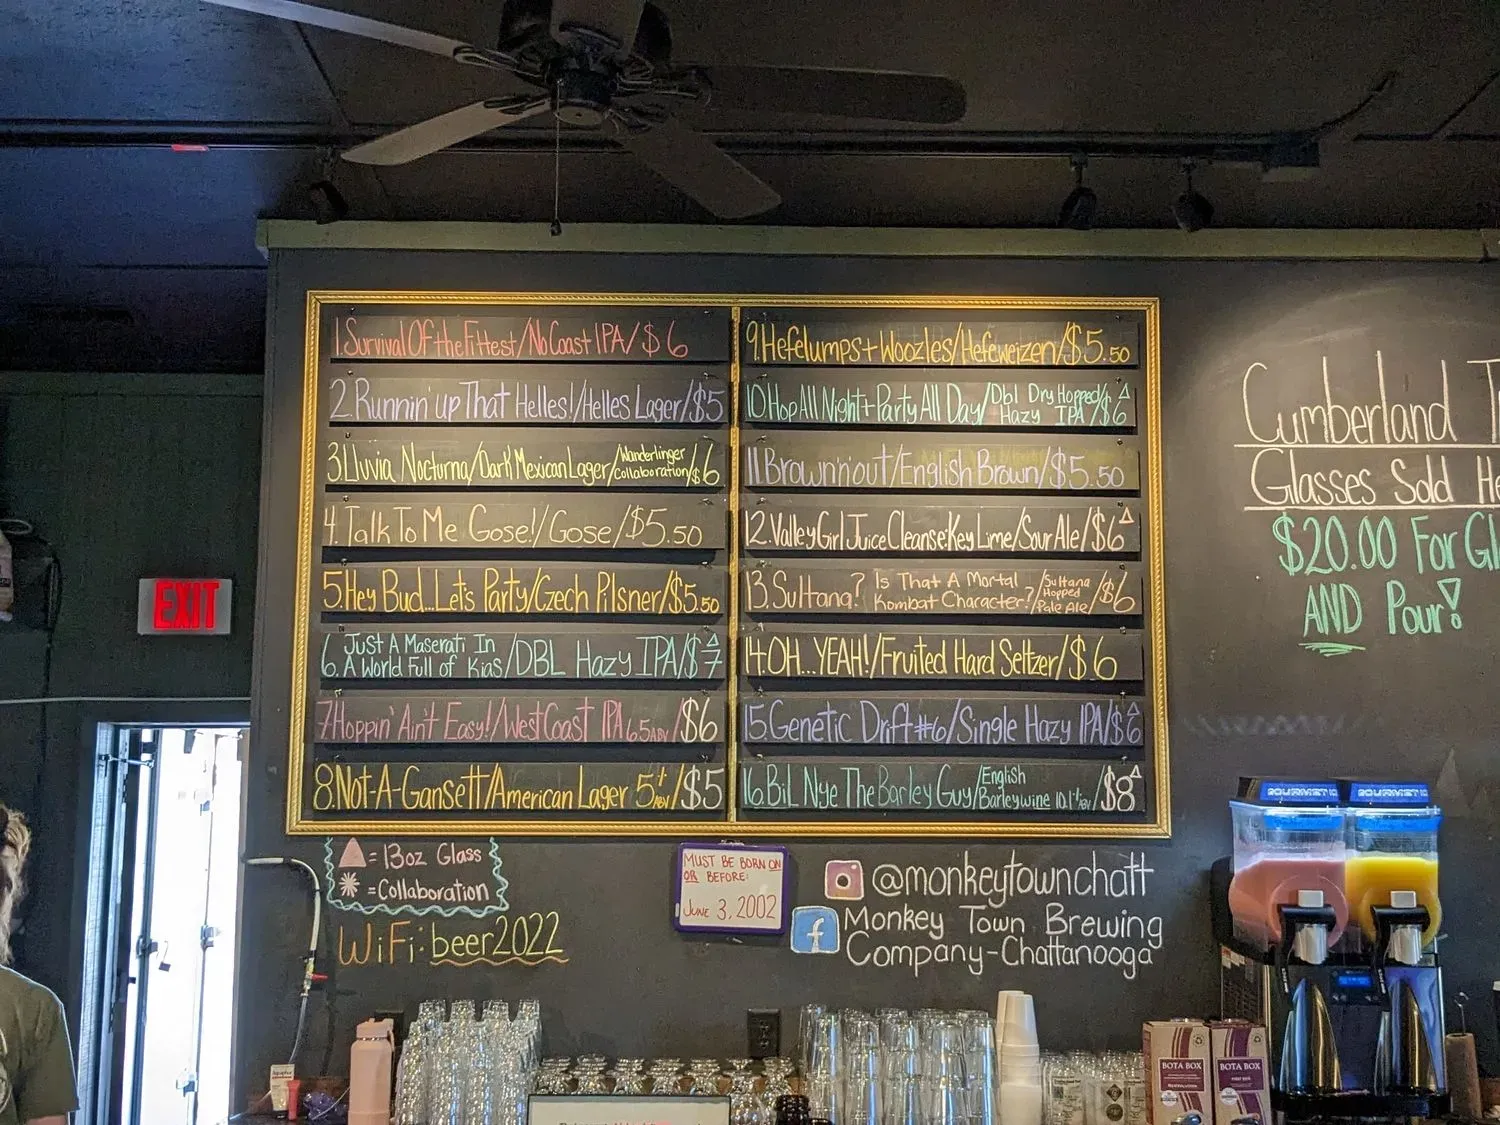 1. Survival Of the Fittest/No Coast IPA/$6
2. Runnin' up That Helles!/Helles Lager/$5
3. Lluvia Nocturna/Dark Mexican Lager/Wanderlinger Collaboration/$6
4. Talk To Me Gose!/Gose/$5.50
5. Hey Bud...Let's Party/Czech Pilsner/$5.50
6. Just A Maserati In
A World Full of Kias/DBL Hazy IPA/$7
7. Hoppin' Ain't Easy!/West Coast IPA 6.5 ABV/$6
8. Not-A-Gansett/American Lager 5.1 ABV/$5
9. Hefelumps + Woozles/Hefeweizen/$5.50
10. Hop All Night + Party All Day/Dbl Dry Hopped
Hazy IPA/$6
11. Brown'n'out/English Brown/$5.50
12. Valley Girl Juice Cleanse: Key Lime/Sour Ale/$6
13. Sultana? Is That A Mortal
Kombat Character?/Sultana Hopped Pale Ale/$6
14. OH...YEAH!/Fruited Hard Seltzer/$6
15. Genetic Drift #6/Single Hazy IPA/$6
16. Bil Nye The Barley Guy/English
Barleywine 10.1% ABV/$8
Cumberland
Glasses Sold
$20.00 For
AND Pour!
EXIT
= 13oz Glass
= Collaboration
WiFi: beer2022
MUST BE BORN ON
OR BEFORE:
JUNE 3, 2002
@monkeytownchatt
f Monkey Town Brewing
Company-Chattanooga
GOURMET
GOURMET
BOTA BOX
BOTA BOX